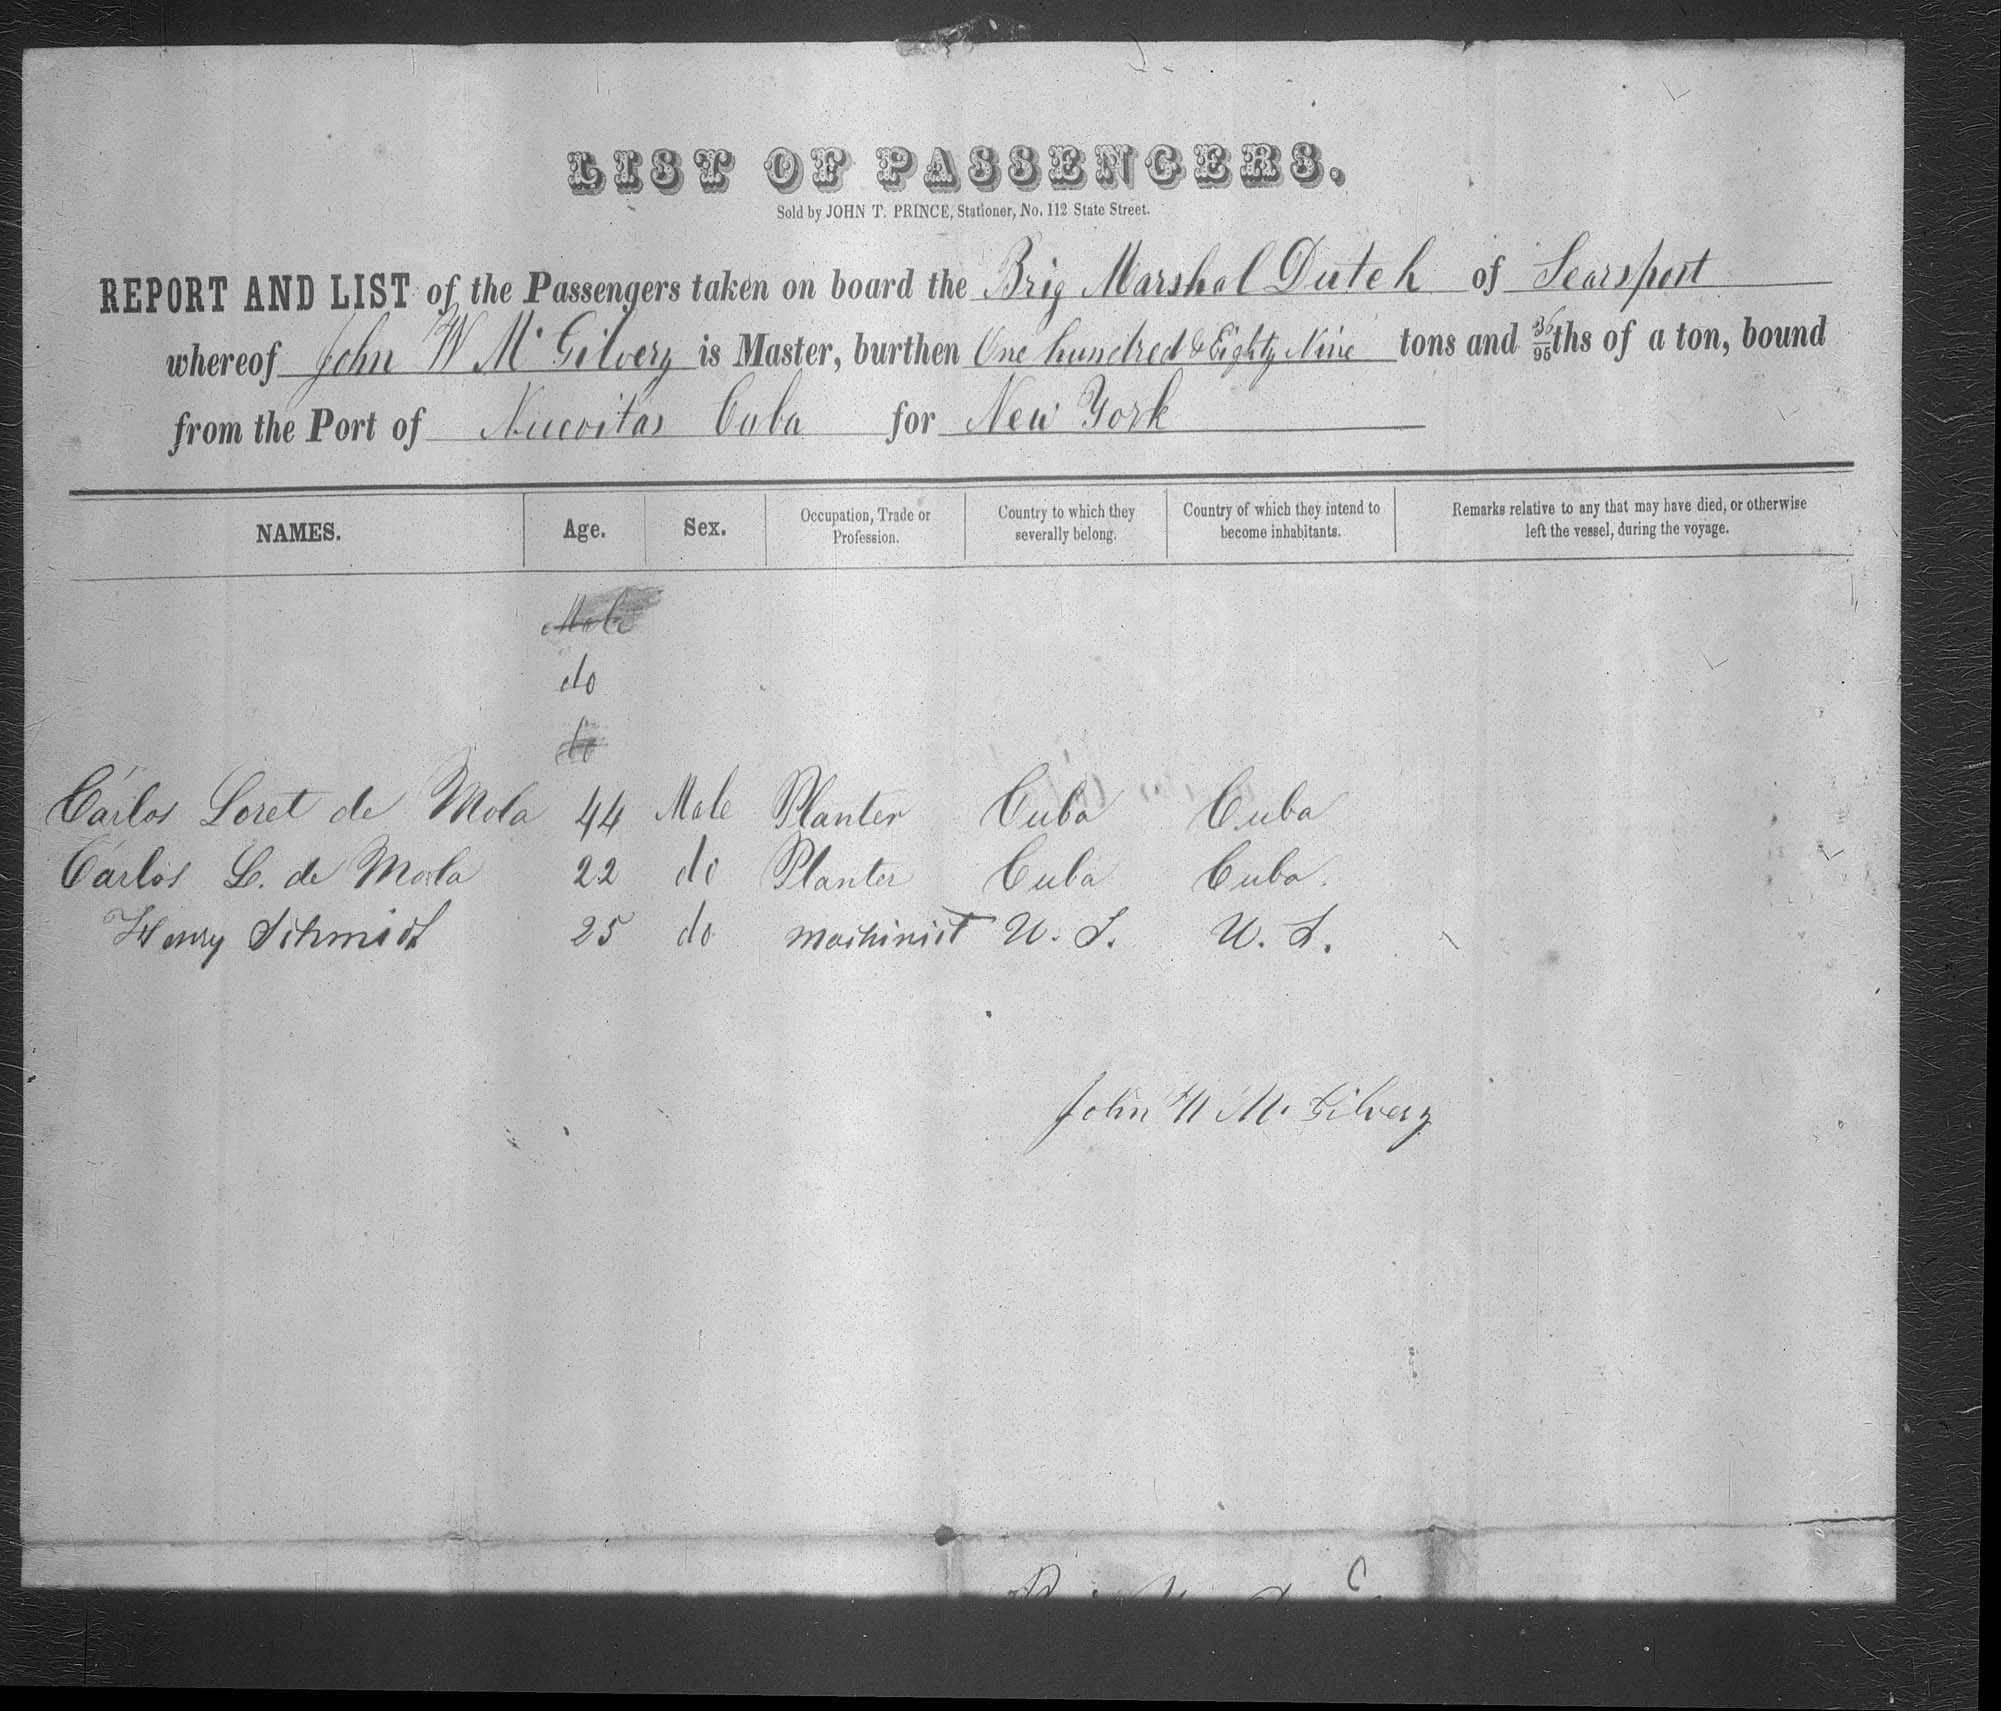 LIST OF PASSENGERS.
Sold by JOHN T. PRINCE, Stationer, No. 112 State Street.
REPORT AND LIST of the Passengers taken on board the Brig Marshal Dutch of Searsport
whereof John W Mc Gilvery is Master, burthen One hundred & Eighty Nine tons and 36/95ths of a ton, bound
from the Port of Nuevitas Cuba for New York
NAMES. Age. Sex. Occupation, Trade or Profession. Country to which they severally belong. Country of which they intend to become inhabitants. Remarks relative to any that may have died, or otherwise left the vessel, during the voyage.
Male
do
do
Carlos Loret de Mola 44 Male Planter Cuba Cuba
Carlos L. de Mola 22 do Planter Cuba Cuba.
Henry Schmidt 25 do machinist U. S. U. S.
John W Mc Gilvery